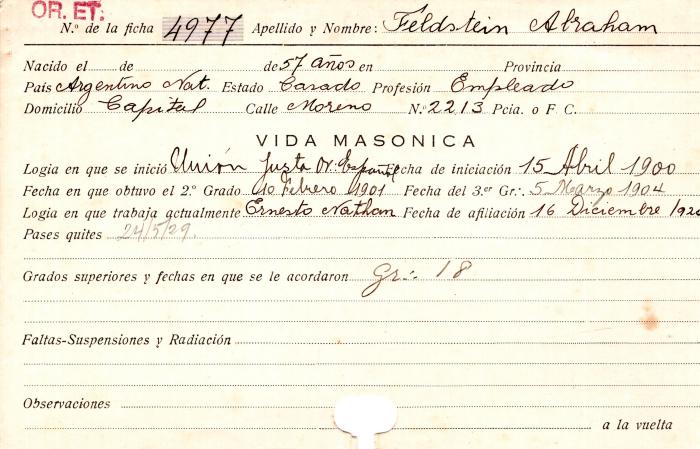 OR. ET.
N.º de la ficha 4977 Apellido y Nombre: Feldstein Abraham
Nacido el de de 57 años en Provincia
País Argentino Nat. Estado Casado Profesión Empleado
Domicilio Capital Calle Moreno N.º 2213 Pcia. o F. C.
VIDA MASONICA
Logia en que se inició Unión Justa Or. Español Fecha de iniciación 15 Abril 1900
Fecha en que obtuvo el 2.º Grado 10 Febrero 1901 Fecha del 3.er Gr.·. 5 Marzo 1904
Logia en que trabaja actualmente Ernesto Nathan Fecha de afiliación 16 Diciembre
Pases quites 24/5/29.
Grados superiores y fechas en que se le acordaron Gr.·. 18
Faltas-Suspensiones y Radiación
Observaciones
a la vuelta